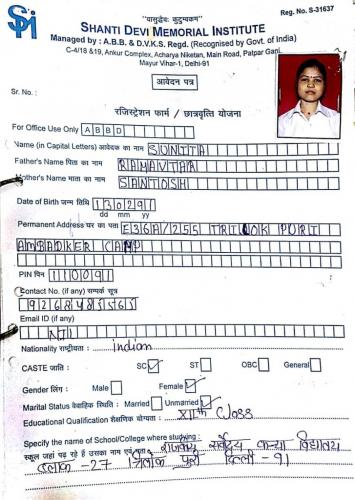 "वासुदेवः कुटुम्बकम्"
Reg. No. S-31637
SPMI
SHANTI DEVI MEMORIAL INSTITUTE
Managed by : A.B.B. & D.V.K.S. Regd. (Recognised by Govt. of India)
C-4/18 &19, Ankur Complex, Acharya Niketan, Main Road, Patpar Ganj,
Mayur Vihar-1, Delhi-91
आवेदन पत्र
Sr. No :
रजिस्ट्रेशन फार्म / छात्रवृत्ति योजना
For Office Use Only ABBD
Name (in Capital Letters) आवेदक का नाम SUNITA
Father's Name पिता का नाम RAMAVTAR
Mother's Name माता का नाम SANTOSH
Date of Birth जन्म तिथि 130291
dd mm yy
Permanent Address घर का पता E36A/255 TRILOK PURI
AMBADKER CAMP
PIN पिन 110091
Contact No. (if any) सम्पर्क सूत्र
Email ID (if any)
NIL
Nationality राष्ट्रीयता : Indian
CASTE जाति : SC ✓ ST OBC General
Gender लिंग : Male Female ✓
Marital Status वेवाहिक स्थिति : Married Unmarried ✓
Educational Qualification शैक्षणिक योग्यता : XIIth Class
Specify the name of School/College where studying :
स्कूल जहां पढ़ रहे हैं उसका नाम एवं पता राजकीय सर्वोदय कन्या विद्यालय
ब्लाक - 27 त्रिलोक पुरी दिल्ली - 91